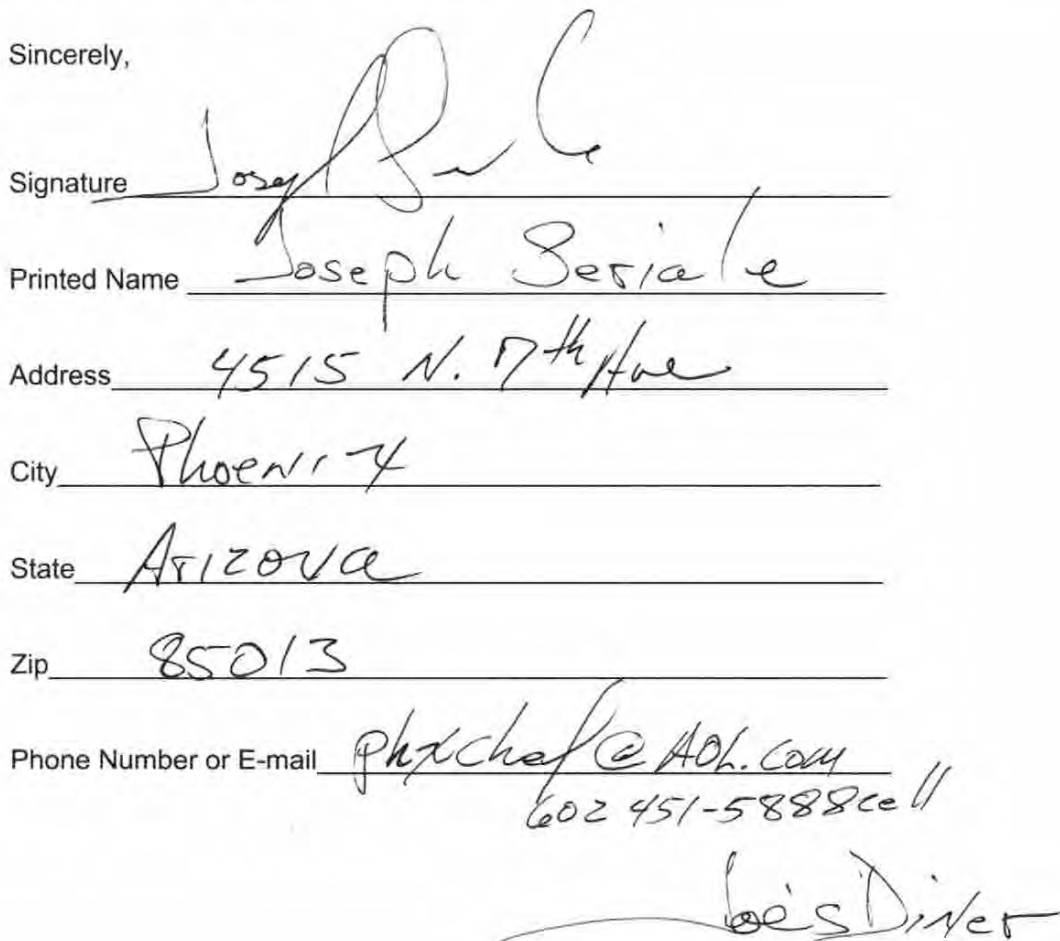 Sincerely,
Signature Joseph
Printed Name Joseph Seriale
Address 4515 N. 7th Ave
City Phoenix
State Arizona
Zip 85013
Phone Number or E-mail phxchef@AOL.com
602 451-5888 cell
Joe's Diner